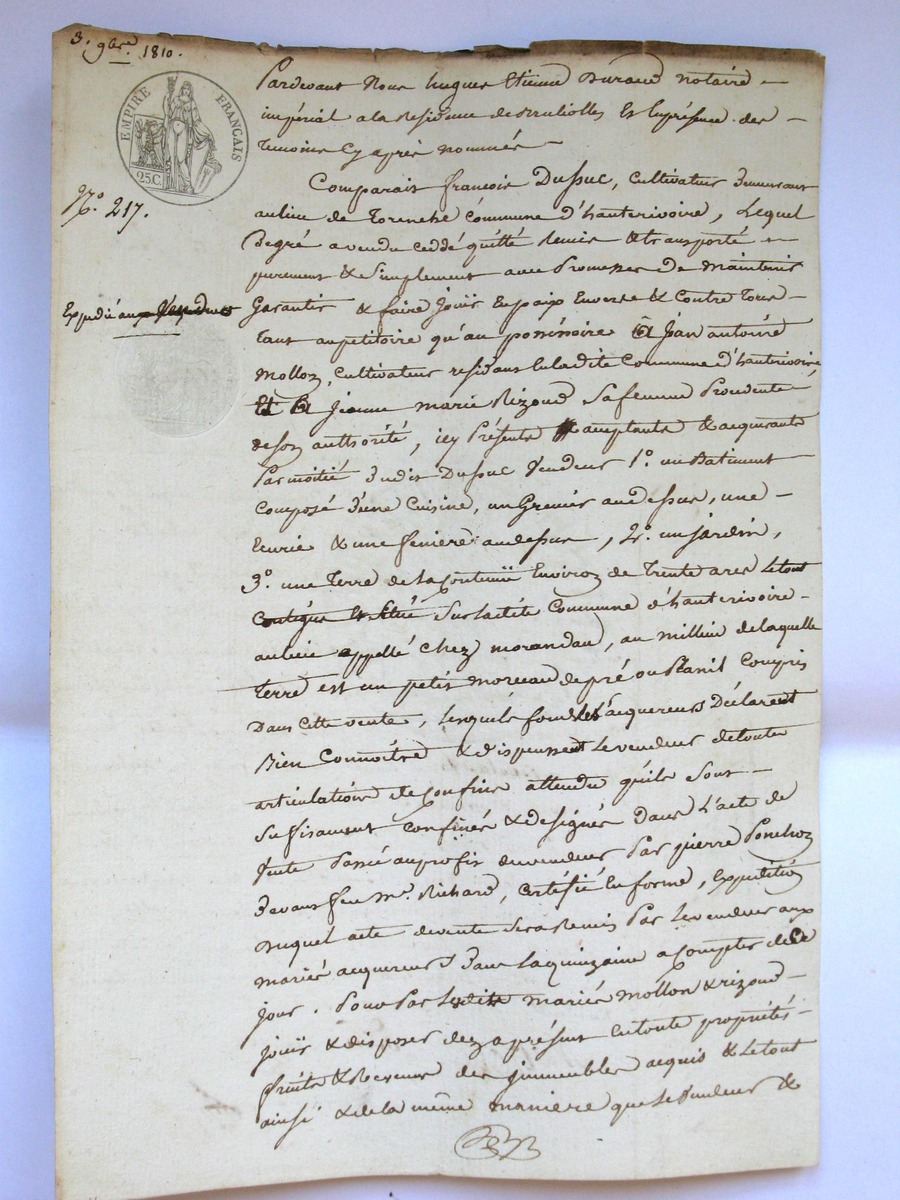 3. 9bre 1810.
EMPIRE FRANÇAIS
25C.
N.º 217.
Expédié aux
Pardevant Nous hugues Etienne Durand notaire
impérial a la Residence de Brulliolles Et En présence des
temoins Cy après nommés
Comparait françois Dussuc, Cultivateur demeurant
au lieu de Commune d'hauterivoire, Lequel
Degré a vendu ceddé quitté Remis & transporté
purement & simplement avec Promesses De Maintenir
Garantir & faire jouir En paix Envers & Contre tous
tant au petitoire qu'au possessoire à jean antoine
Mollon, Cultivateur residant En ladite Commune d'hauterivoire,
Et à Jeanne marie Rizoud Sa femme Procedente
de son authorité, icy Présents acceptants & acquerants
Par moitié dudit Dussuc Vendeur 1º. un Batiment
Composé d'une Cuisine, un Grenier au dessus, une
Ecurie & une feniere au dessus, 2º. un jardin,
3º. une terre de la Contenue Environ de trente ares Le tout
Contigus & Situé Sur ladite Commune d'hauterivoire
au lieu appellé Chez morandau, au millieu de laquelle
terre est un petit morceau de pré ou Planil Compris
Dans cette vente, lesquels fonds les acquereurs Déclarent
Bien Connoitre & dispensent Le vendeur de toute
articulation de Confins attendu qu'ils Sont
Suffisament Confinés & designés dans L'acte de
Vente Passé au profit du vendeur Par pierre Ponchon
devant feu Mr. Richard, Certifié En forme, Expedition
duquel acte de vente Sera Remis Par Le vendeur aux
mariés acquereurs dans La quinzaine a Compter de Ce
jour. Pour Par Lesdits mariés Mollon & Rizoud
jouir & disposer dez a présent En toute propriétés
fruits & Revenus des jmmeubles acquis & Le tout
ainsi & de la même maniere que Le Vendeur &